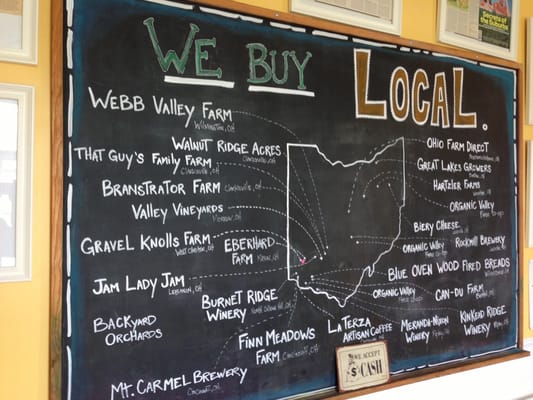 We Buy Local.
Webb Valley Farm
Wilmington, OH
Walnut Ridge Acres
Clarksville, OH
That Guy's Family Farm
Clarksville, OH
Branstrator Farm
Clarksville, OH
Valley Vineyards
Morrow, OH
Gravel Knolls Farm
West Chester, OH
Eberhard
Farm
Jam Lady Jam
Lebanon, OH
Burnet Ridge
Winery
Backyard
Orchards
Finn Meadows
Farm
Mt. Carmel Brewery
Cincinnati, OH
Ohio Farm Direct
Great Lakes Growers
Hartzler Farms
Organic Valley
Biery Cheese
Organic Valley
Rockmill Brewery
Blue Oven Wood Fired Breads
Organic Valley
Can-Du Farm
La Terza
Artisan Coffee
Meranda-Nixon
Winery
Kinkead Ridge
Winery
WE ACCEPT
$ CASH
Secrets of the Suburbs